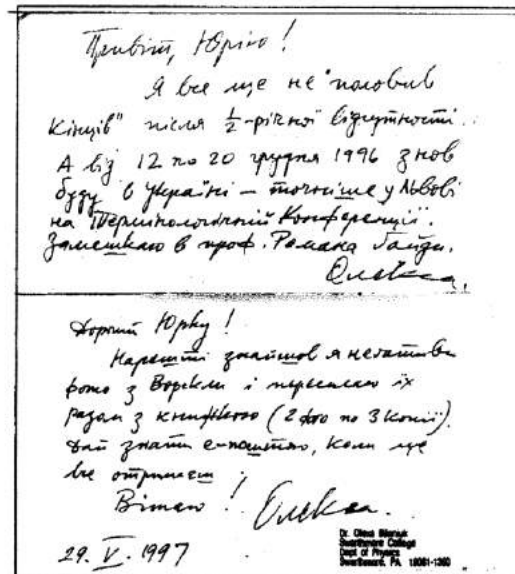 Привіт, Юрію!
Я все ще не "половив
кінців" після ½-річної відсутності.
А від 12 по 20 грудня 1996 знов
буду в Україні – точніше у Львові
на Термінологічній Конференції.
Замешкаю в проф. Романа Гайди.
Олекса.
Дорогий Юрку!
Нарешті знайшов я негативи
фото з Ворскли і пересилаю їх
разом з книжкою (2 фото по 3 копії).
Дай знати е-поштою, коли це
все отримаєш.
Вітаю! Олекса.
29. V. 1997
Dr. Olexa Bilaniuk
Swarthmore College
Dept of Physics
Swarthmore, PA 19081-1390